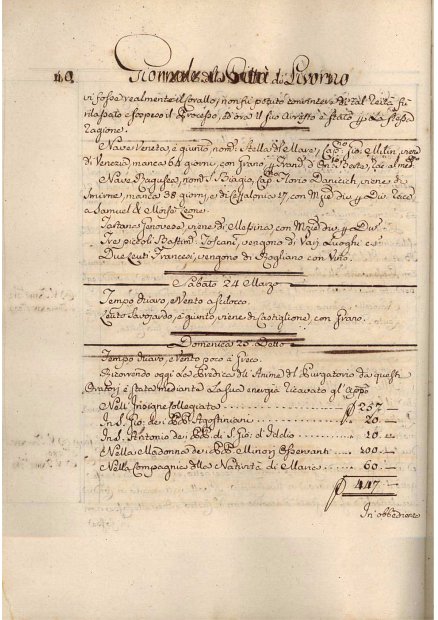 40. Giornale della Città di Livorno
vi fosse realmente il corallo, non fù potuto convincere di tal Reità fù
rilassato e sospeso il Processo, ed ora il suo arresto è stato p la stessa
Ragione.
Nave Veneta, è giunto, nom. Stella del Mare, Cap.no Gio: Milin, viene
di Venezia manca 64 giorni, con grano, p
Nave Ragusea, nom. S. Biagio, Cap.no Florio Danicich, viene di
Smirne, manca 38 giorni, e di Cefalonia 17, con Mzie div. p Div. Racc.
a Samuel & Mosse Leone.
Tartana Genovese, viene di Messina, con Mzie div. p Div.
Tre piccoli Bastim. Toscani, vengono di Varj Luoghi es
Due Leuti Francesi, vengono di Rogliano con Vino.
Sabato 24 Marzo
Tempo chiaro, e Vento a scilocco.
Leuto Savojardo, è giunto, viene di Castiglione, con grano.
Domenica 25 Detto
Tempo chiaro, e vento poco à greco.
Ricorrendo oggi la Predica dell' Anime del Purgatorio da questi
Oratori è stata mediante la sua energia ricavato gl' app.o
Nell' Insigne Collegiata 257 —
In S. Gio: de PP. Agostiniani 20 —
In S. Antonio de PP. di S. Gio: d' Iddio 10 —
E Nella Madonna de PP. Minori Osservanti 100 —
Nella Compagnia della Natività di Maria 60 —
447 —
In obbedienza